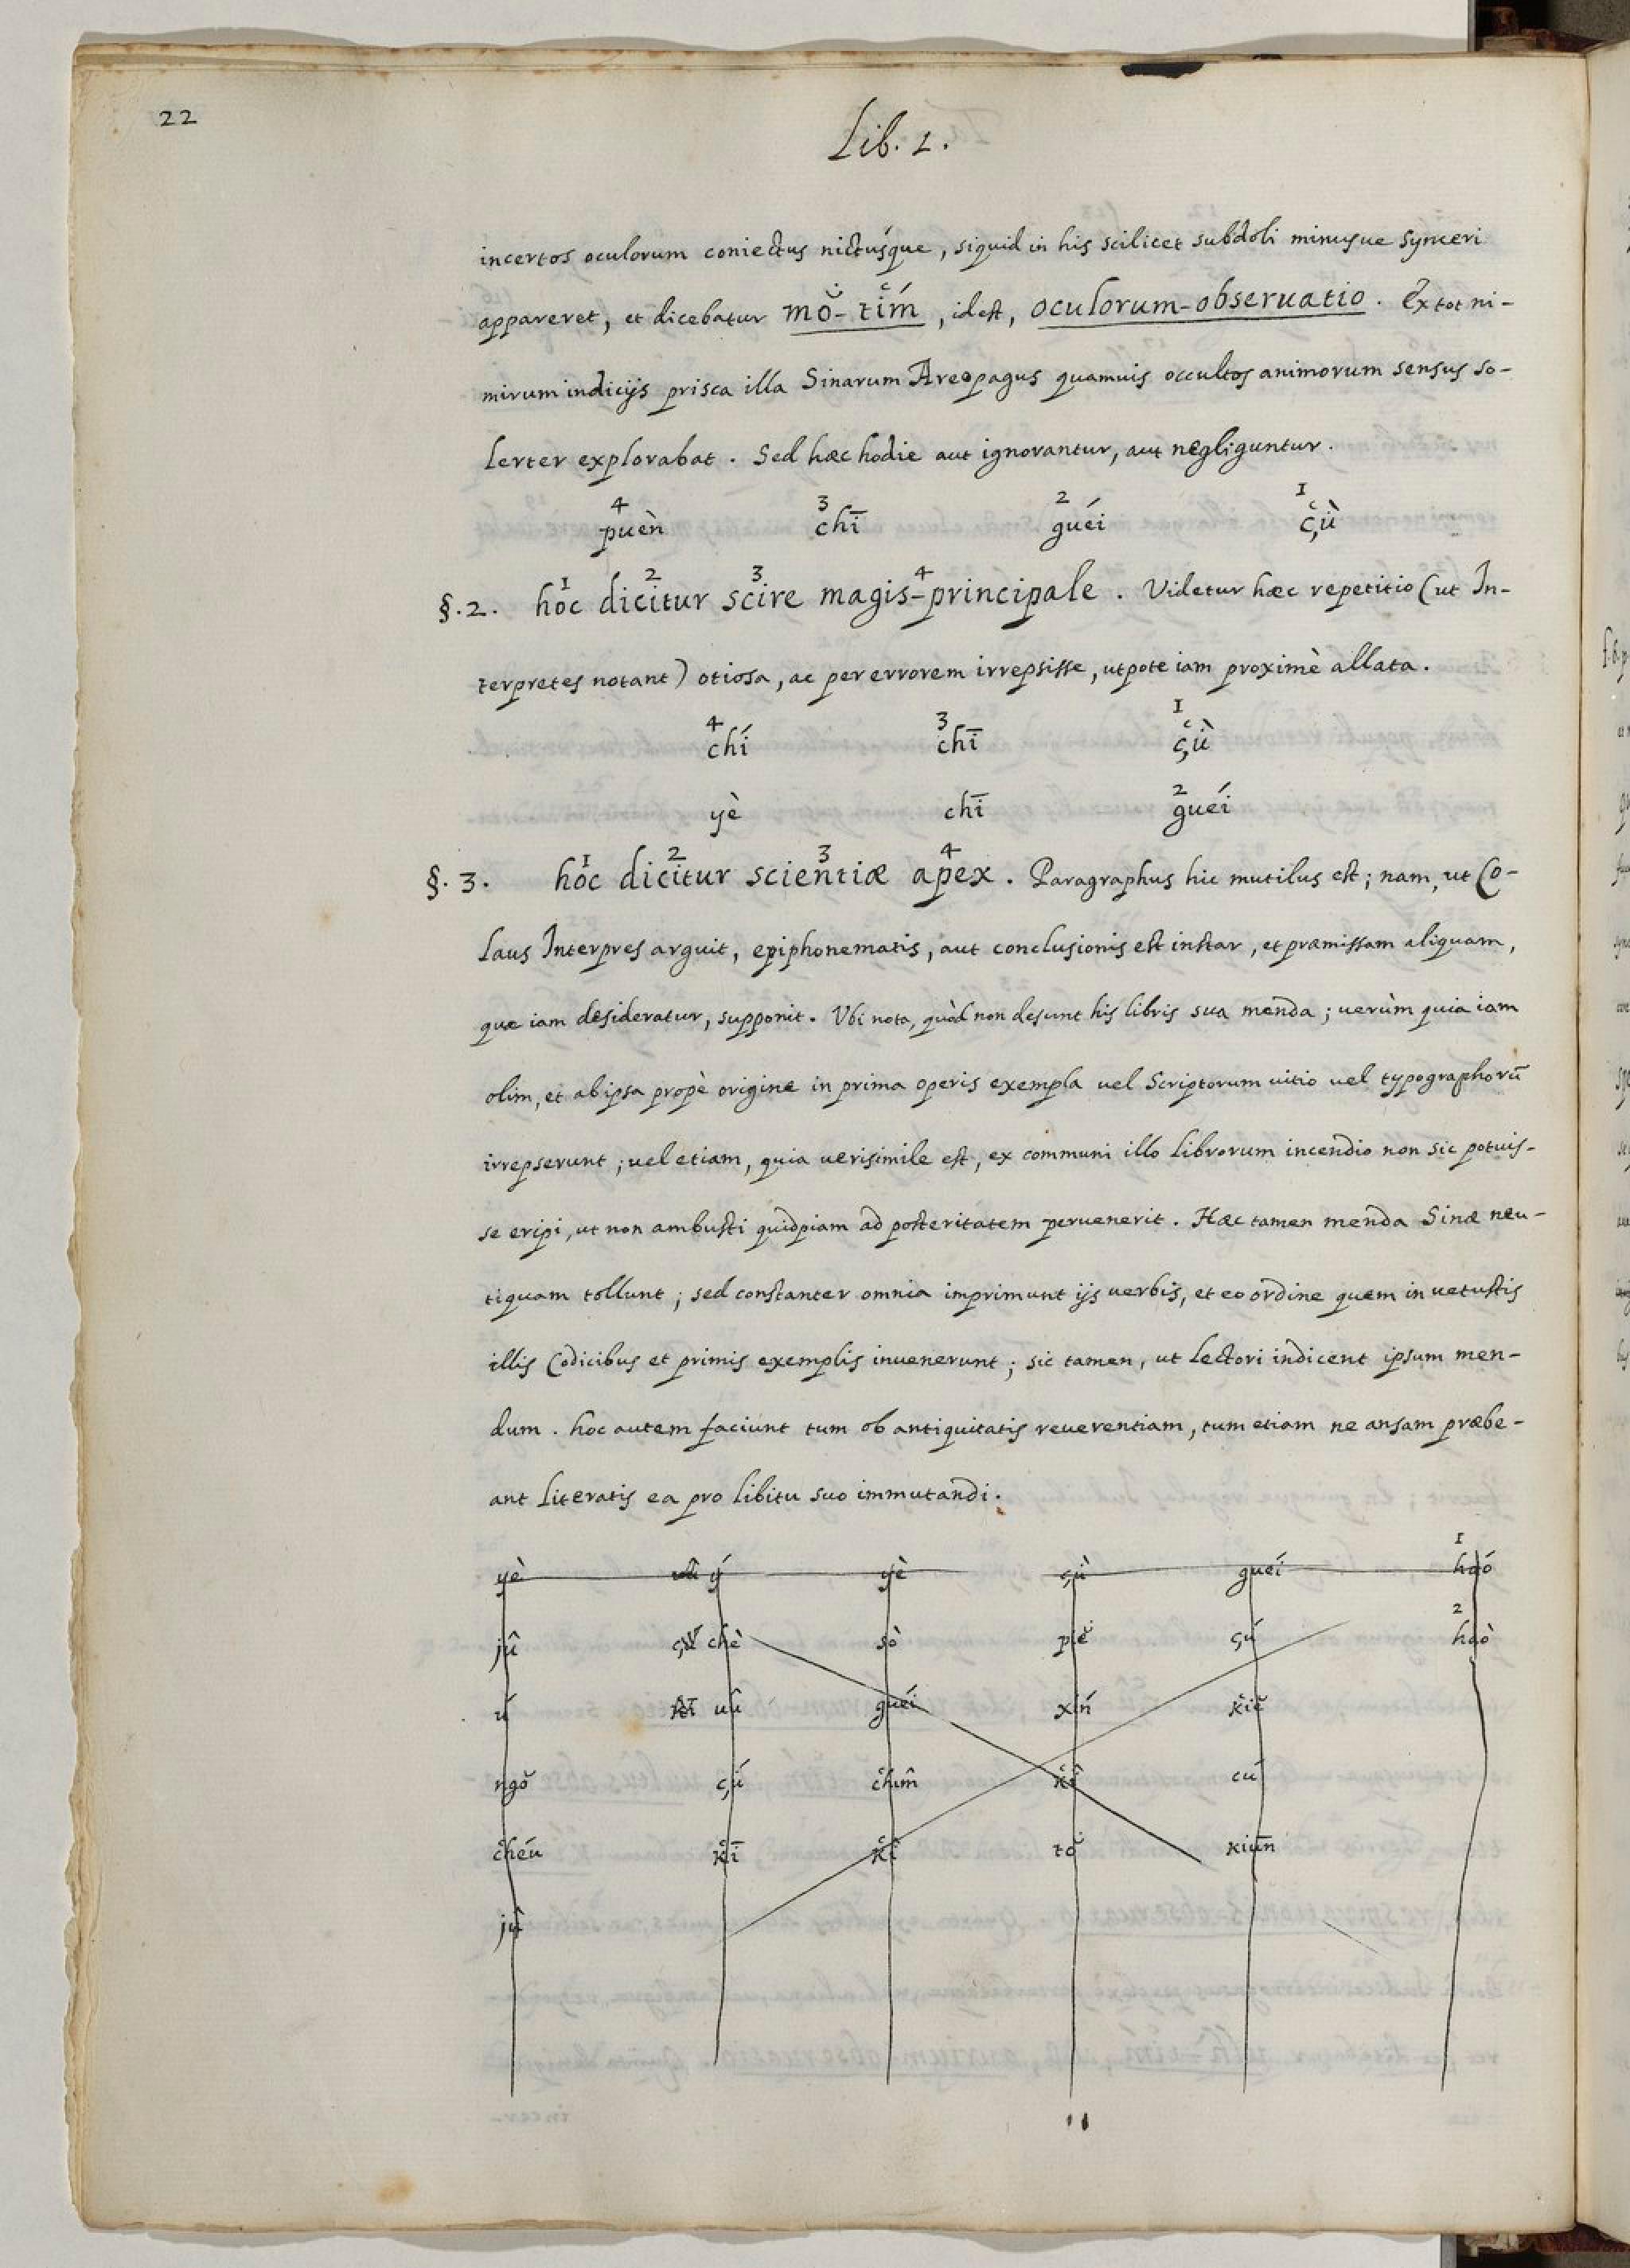 22
Lib. 1.
incertos oculorum coniectus nictúsque, siquid in his scilicet subdoli minusue synceri
appareret, et dicebatur mŏ-tím, idest, oculorum-observatio. Ex tot ni-
mirum indicijs prisca illa Sinarum Areopagus quamuis occultos animorum sensus so-
lerter explorabat. Sed hæc hodie aut ignorantur, aut negliguntur.
4 3 2 1
puèn chī guéi çù
1 2 3 4
§.2. hoc dicitur scire magis-principale. Videtur hæc repetitio (ut In-
terpretes notant) otiosa, ac per errorem irrepsisse, utpote iam proximè allata.
4 3 1
chí chī çù
2
yè chī guéi
1 2 3 4
§.3. hoc dicitur scientiæ apex. Paragraphus hic mutilus est; nam, ut Co-
laus Interpres arguit, epiphonematis, aut conclusionis est instar, et præmissam aliquam,
que iam desideratur, supponit. Vbi nota, quòd non desunt his libris sua menda; uerùm quia iam
olim, et ab ipsa propè origine in prima operis exempla uel Scriptorum uitio uel typographorū
irrepserunt; uel etiam, quia uerisimile est, ex communi illo librorum incendio non sic potuis-
se eripi, ut non ambusti quidpiam ad posteritatem peruenerit. Hæc tamen menda Sinæ neu-
tiquam tollunt; sed constanter omnia imprimunt ijs uerbis, et eo ordine quem in uetustis
illis Codicibus et primis exemplis inuenerunt; sic tamen, ut Lectori indicent ipsum men-
dum. hoc autem faciunt tum ob antiquitatis reuerentiam, tum etiam ne ansam præbe-
ant literatis ea pro libitu suo immutandi.
1
yè ý yè çù guéi haó
2
jû chè sò piĕ çú haò
ú uû guéi xín kiĕ
ngŏ çú chim̂ kî cú
chéu kī kî tŏ kiūn
jû